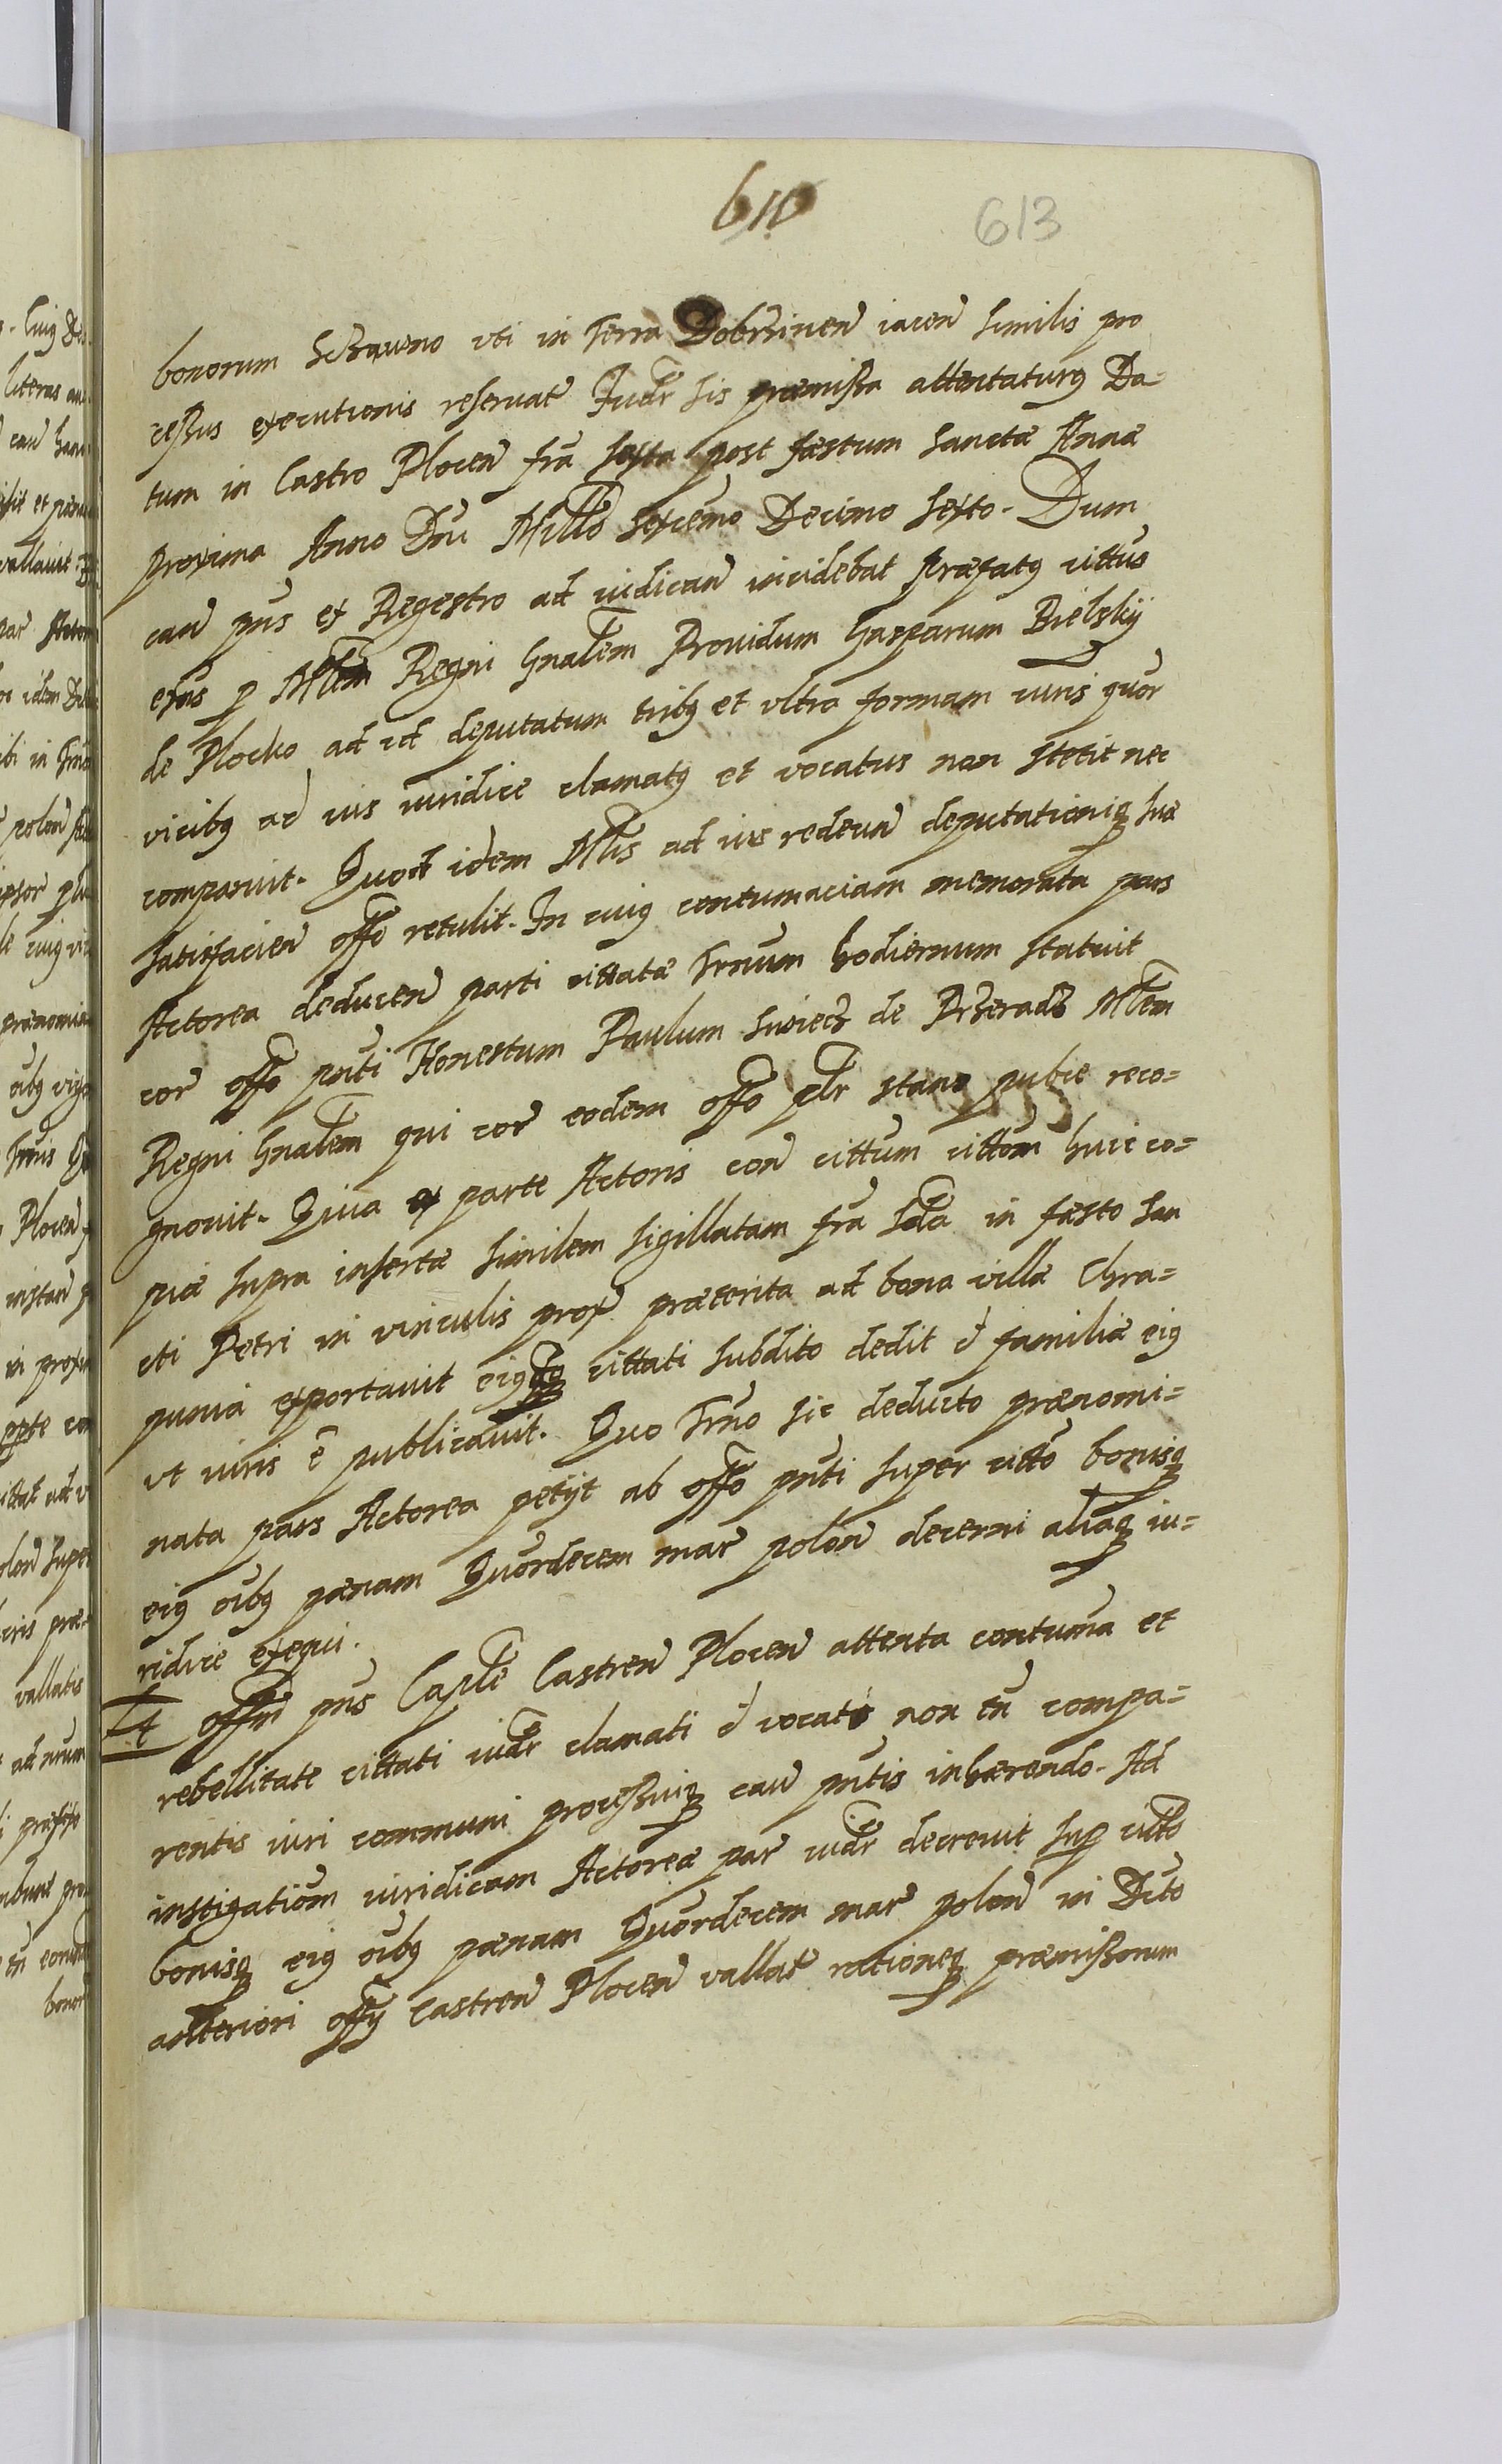 610
613
bonorum uti in Terra Dobrinen iacen similis pro
cessus executionis reservat Iudr sis præmissa attentaturus Da-
tum in Castro Plocen fra sexta post fæstum sanctæ Annæ
proxima Anno Dni Millo sexcemo Decimo sexto. Dum
cau pns ex Regestro ad iudican incidebat præfatus cittus
p Mlem Regni Gnalem Providum Gasparum Bielskij
de Plocko ad id deputatum tribus et ultra formam iuris quor
vicibus ad ius iuridice clamatus et vocatus non stetit nec
comparuit. Quod idem Mlis ad ius redeun deputationiq suæ
satisfacien offo retulit. In cuius contumaciam memorata pars
Actorea deducen parti cittatæ Trnum hodiernum statuit
cor offo pnti Honestum Paulum Swiech de Mlem
Regni Gnalem qui cor eodem offo plr stans publce reco=
gnovit. Quia ex parte Actoris con cittum cittom huic co=
piæ supra insertæ similem sigillatam fra Scda in fæsto San
cti Petri in vinculis prox præterita ad bona villæ Chra=
punia exportavit eiusq cittati subdito dedit et familiæ eius
ut iuris e publicavit. Quo Trno sic deducto prænomi=
nata pars Actorea petyt ab offo pnti super citto bonisq
eius oibus pænam Quordecem mar polon decerni aliaq iu=
ridice exequi.
Et offm pns Caple Castren Plocen attenta contuma et
rebellitate cittati iudr clamati et vocati non tn compa=
rentis iuri communi processuiq cau pntis inhærendo. Ad
instigatiom iuridicam Actoreæ par iudr decrevit sup citto
bonisq eius oibus pænam Quordecem mar polon in Dcto
anteriori offy Castren Plocen vallat rationeq præmissorum